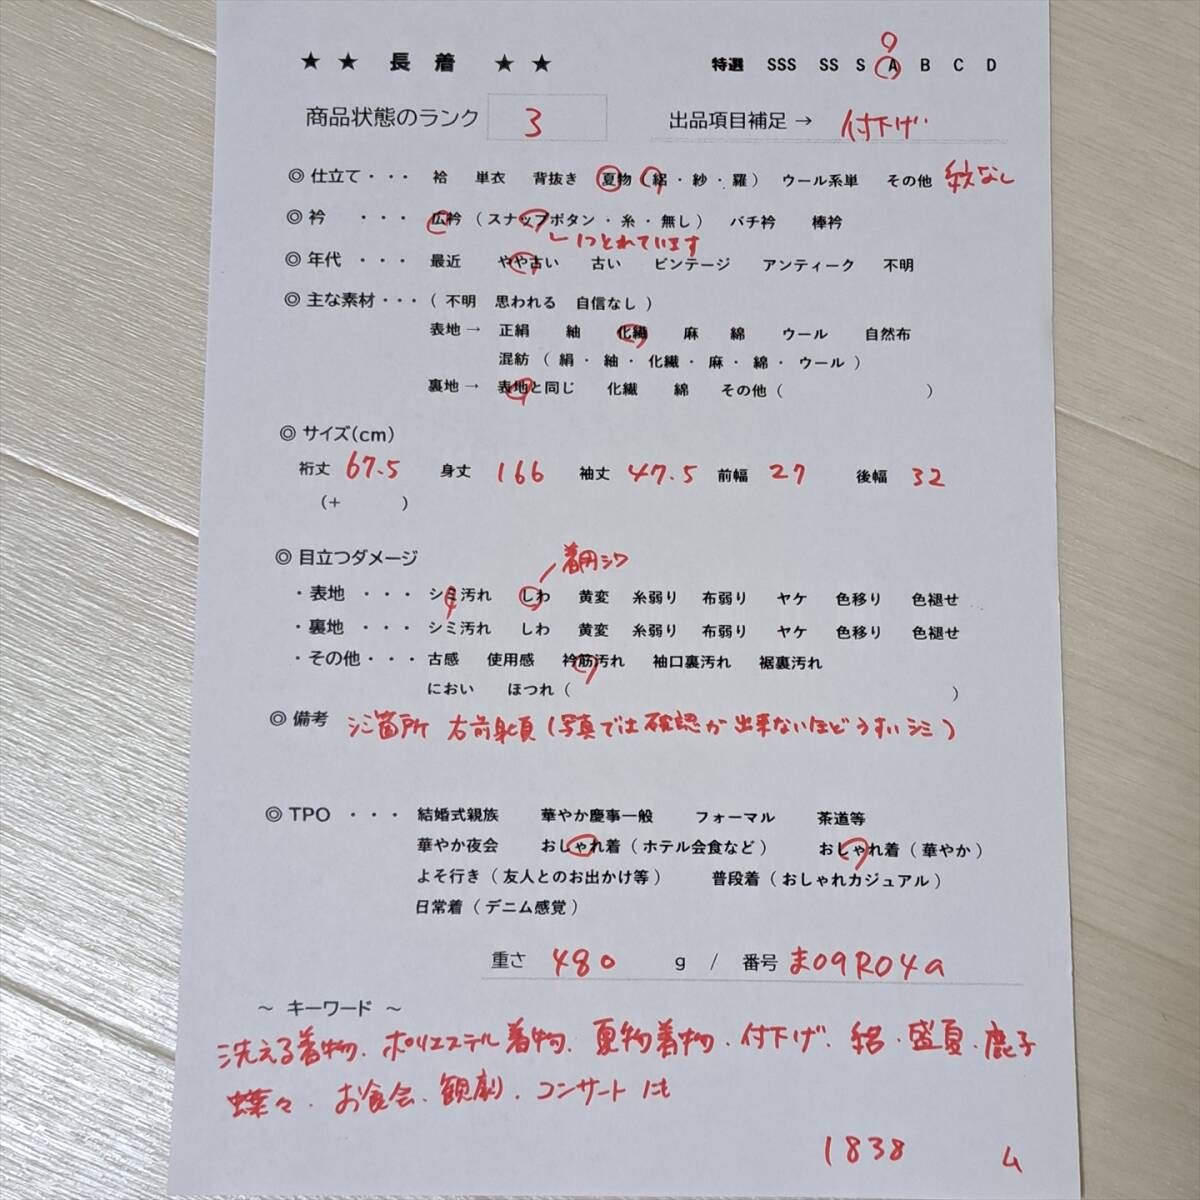 ★ ★ 長 着 ★ ★ 特選 SSS SS S A B C D
商品状態のランク 3 出品項目補足 → 付下げ
◎ 仕立て・・・ 袷 単衣 背抜き 夏物 ( 絽 ・ 紗 ・ 羅 ) ウール系単 その他 紋なし
◎ 衿 ・・・ 広衿 ( スナップボタン ・ 糸 ・ 無し ) バチ衿 棒衿
1つとれています
◎ 年代 ・・・ 最近 やや古い 古い ビンテージ アンティーク 不明
◎ 主な素材・・・ ( 不明 思われる 自信なし )
表地 → 正絹 紬 化繊 麻 綿 ウール 自然布
混紡 ( 絹 ・ 紬 ・ 化繊 ・ 麻 ・ 綿 ・ ウール )
裏地 → 表地と同じ 化繊 綿 その他 ( )
◎ サイズ(cm)
裄丈 67.5 身丈 166 袖丈 47.5 前幅 27 後幅 32
(+ )
◎ 目立つダメージ
着用シワ
・ 表地 ・・・ シミ汚れ しわ 黄変 糸弱り 布弱り ヤケ 色移り 色褪せ
・ 裏地 ・・・ シミ汚れ しわ 黄変 糸弱り 布弱り ヤケ 色移り 色褪せ
・ その他・・・ 古感 使用感 衿筋汚れ 袖口裏汚れ 裾裏汚れ
におい ほつれ ( )
◎ 備考 シミ箇所 右前身頃 (写真では確認が出来ないほどうすいシミ)
◎ TPO ・・・ 結婚式親族 華やか慶事一般 フォーマル 茶道等
華やか夜会 おしゃれ着 ( ホテル会食など ) おしゃれ着 ( 華やか )
よそ行き ( 友人とのお出かけ等 ) 普段着 ( おしゃれカジュアル )
日常着 ( デニム感覚 )
重さ 480 g / 番号 ま09R04a
～ キーワード ～
洗える着物、ポリエステル着物、夏物着物、付下げ、絽・盛夏、鹿子
蝶々、お食会、観劇、コンサートにも
1838 ム